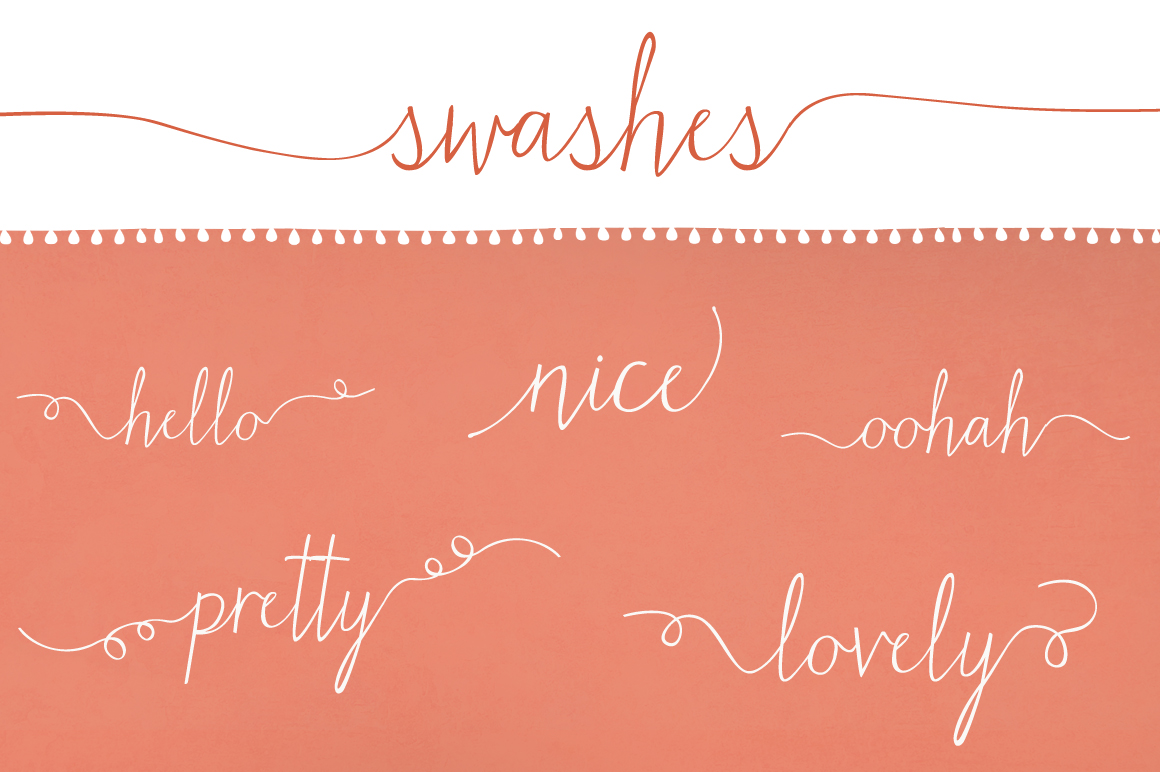 swashes
hello
nice
oohah
pretty
lovely